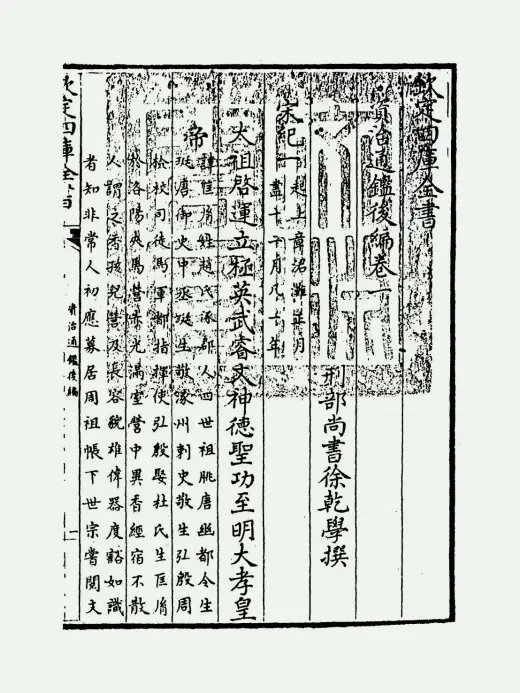 欽定四庫全書
資治通鑑後編卷一
刑部尚書徐乾學撰
宋紀一起上章涒灘正月
盡十二月凡一年
太祖啓運立極英武睿文神德聖功至明大孝皇
帝諱匡𦙍姓趙氏涿郡人四世祖脁唐幽都令生
珽唐御史中丞珽生敬涿州刺史敬生弘殷周
檢校司徒馬軍都指揮使弘殷娶杜氏生匡𦙍
於洛陽夾馬營赤光滿室營中異香經宿不散
人謂之香孩兒營及長容貌雄偉器度豁如識
者知非常人初應募居周祖帳下世宗嘗閱文
欽定四庫全書
資治通鑑後編
一